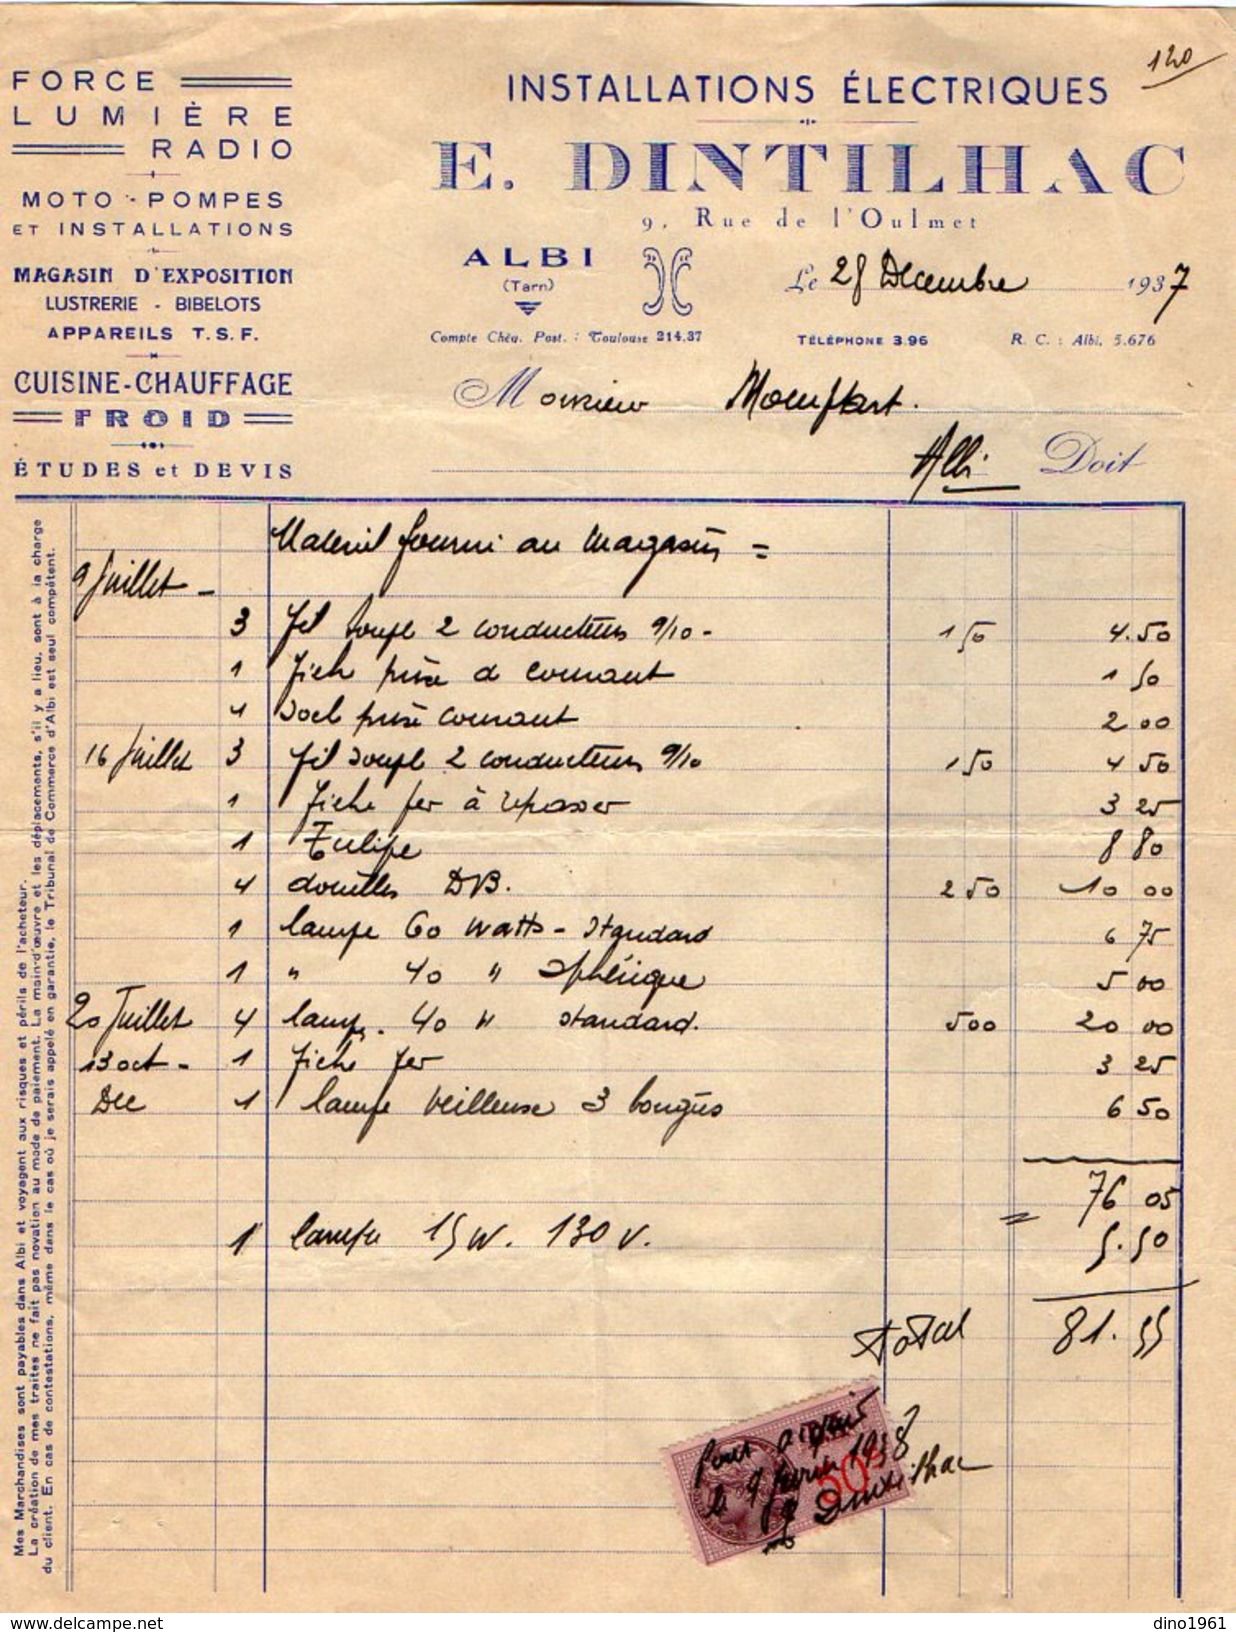 120
FORCE
LUMIÈRE
RADIO
MOTO - POMPES
ET INSTALLATIONS
MAGASIN D'EXPOSITION
LUSTRERIE - BIBELOTS
APPAREILS T.S.F.
CUISINE-CHAUFFAGE
FROID
ÉTUDES et DEVIS
INSTALLATIONS ÉLECTRIQUES
E. DINTILHAC
9, Rue de l'Oulmet
ALBI
(Tarn)
Le 28 Décembre 1937
Compte Chèq. Post. : Toulouse 214.37 TÉLÉPHONE 3.96 R. C. : Albi, 5.676
Monsieur Moufflart.
Albi Doit
Materiel fourni au magasin =
9 Juillet -
3 fil souple 2 conducteurs 9/10 - 1 50 4.50
1 fiche prise de courant 1 50
1 socle prise courant 2 00
16 Juillet 3 fil souple 2 conducteurs 9/10 1 50 4 50
1 fiche fer à repasser 3 25
1 Tulipe 8 80
4 douilles DB. 2 50 10 00
1 lampe 60 Watts - Standard 6 75
1 " 40 " Sphérique 5 00
20 Juillet 4 lampe. 40 " standard. 5 00 20 00
13 oct - 1 fiche fer 3 25
Dec 1 lampe Veilleuse 3 bougies 6 50
76 05
1 lampe 15 W. 130 V. 5.50
Total 81.55
Pour acquit
le 9 février 1938
Dintilhac
50
Mes Marchandises sont payables dans Albi et voyagent aux risques et périls de l'acheteur.
La création de mes traites ne fait pas novation au mode de paiement. La main-d'œuvre et les déplacements, s'il y a lieu, sont à la charge
du client. En cas de contestations, même dans le cas où je serais appelé en garantie, le Tribunal de Commerce d'Albi est seul compétent.
www.delcampe.net
dino1961